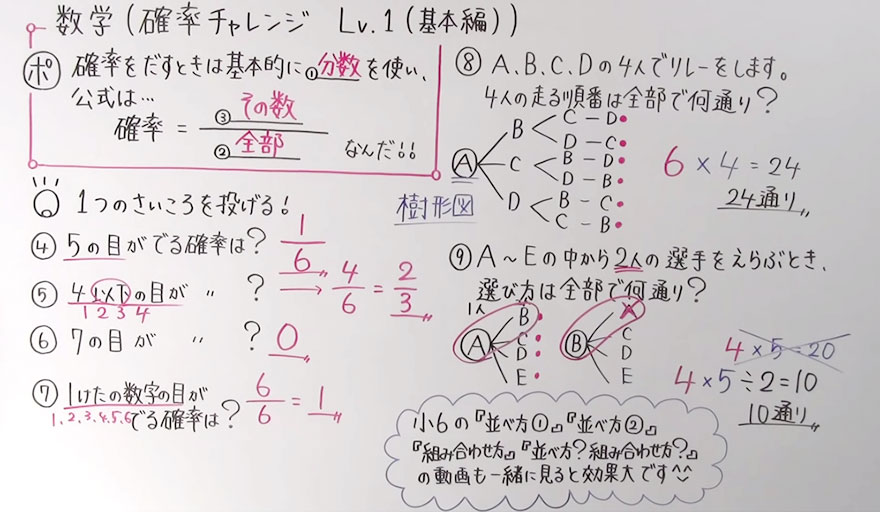 数学(確率チャレンジ Lv.1(基本編))
ポ 確率をだすときは基本的に①分数を使い、
公式は…
確率 = ③その数 / ②全部 なんだ!!
1つのさいころを投げる!
④ 5の目がでる確率は? 1/6
⑤ 4以下の目が 〃 ? → 4/6 = 2/3
1 2 3 4
⑥ 7の目が 〃 ? 0
⑦ 1けたの数字の目が
1.2.3.4.5.6 でる確率は? 6/6 = 1
⑧ A、B、C、Dの4人でリレーをします。
4人の走る順番は全部で何通り?
A
B < C - D
D - C
C < B - D
D - B
D < B - C
C - B
樹形図
6 × 4 = 24
24通り
⑨ A~Eの中から2人の選手をえらぶとき、
選び方は全部で何通り?
1人
A B
C
D
E
B A
C
D
E
4 × 5 = 20
4 × 5 ÷ 2 = 10
10通り
小6の『並べ方①』『並べ方②』
『組み合わせ方』『並べ方?組み合わせ方?』
の動画も一緒に見ると効果大です^^